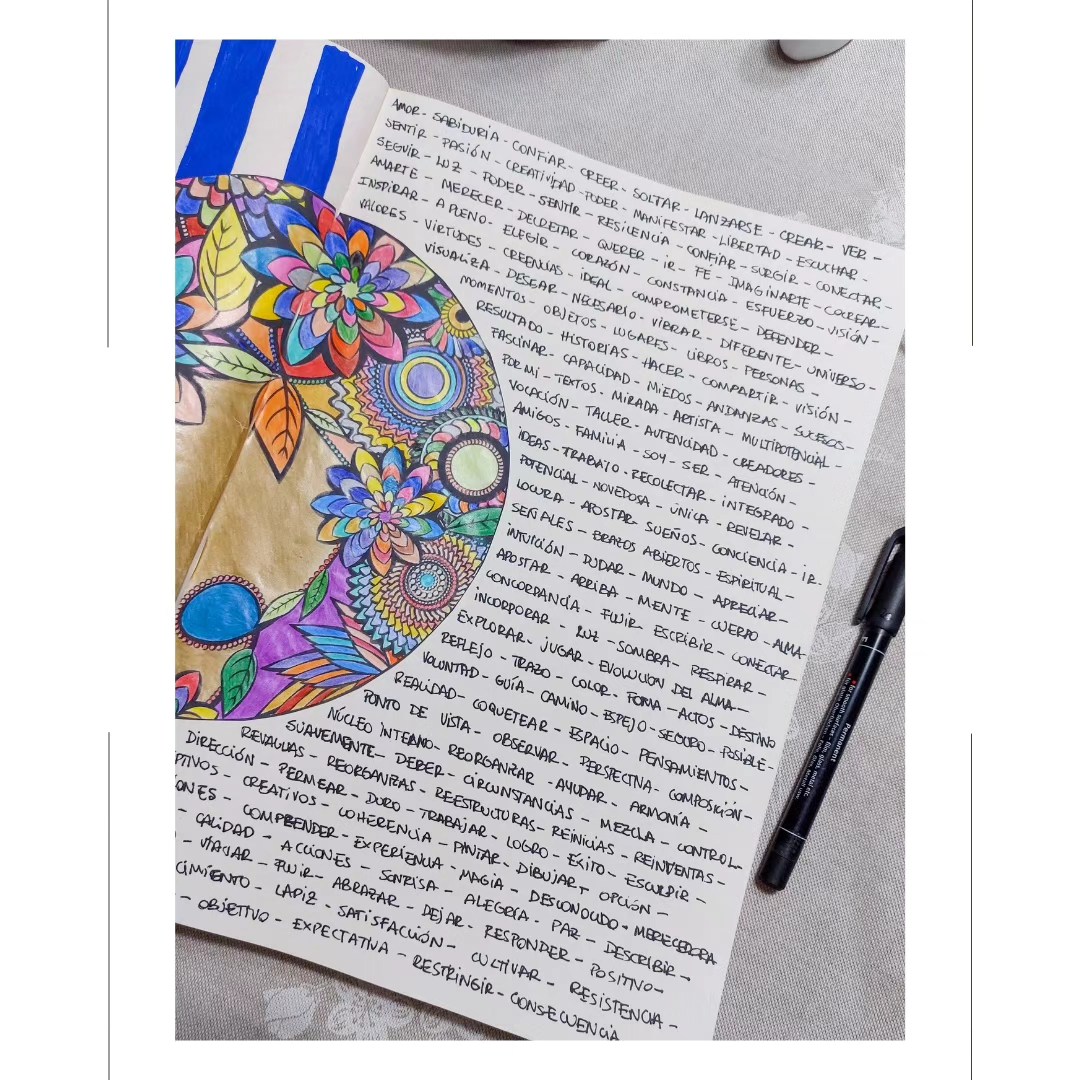 AMOR - SABIDURÍA - CONFIAR - CREER - SOLTAR - LANZARSE - CREAR - VER -
SENTIR - PASIÓN - CREATIVIDAD - PODER - MANIFESTAR - LIBERTAD - ESCUCHAR -
SEGUIR - LUZ - PODER - SENTIR - RESILENCIA - CONFIAR - SURGIR - CONECTAR
AMARTE - MERECER - DECRETAR - QUERER - IR - FE - IMAGINARTE - COCREAR -
INSPIRAR - A PLENO - ELEGIR - CORAZÓN - CONSTANCIA - ESFUERZO - VISIÓN -
VALORES - VIRTUDES - CREENCIAS - IDEAL - COMPROMETERSE - DEFENDER -
VISUALIZA - DESEAR - NECESARIO - VIBRAR - DIFERENTE - UNIVERSO -
MOMENTOS - OBJETOS - LUGARES - LIBROS - PERSONAS -
RESULTADO - HISTORIAS - HACER - COMPARTIR - VISIÓN -
FASCINAR - CAPACIDAD - MIEDOS - ANDANZAS - SUCESOS -
POR MI - TEXTOS - MIRADA - ARTISTA - MULTIPOTENCIAL -
VOCACIÓN - TALLER - AUTENCIDAD - CREADORES -
AMIGOS - FAMILIA - SOY - SER - ATENCIÓN -
IDEAS - TRABAJO - RECOLECTAR - INTEGRADO -
POTENCIAL - NOVEDOSA - ÚNICA - REVELAR -
LOCURA - APOSTAR SUEÑOS - CONCIENCIA - IR -
SEÑALES - BRAZOS ABIERTOS - ESPIRITUAL -
INTUICIÓN - DUDAR - MUNDO - APRECIAR -
APOSTAR - ARRIBA - MENTE - CUERPO - ALMA
CONCORDANCIA - FLUIR ESCRIBIR - CONECTAR
INCORPORAR - LUZ - SOMBRA - RESPIRAR -
EXPLORAR - JUGAR - EVOLUCION DEL ALMA -
REFLEJO - TRAZO - COLOR - FORMA - ACTOS - DESTINO
VOLUNTAD - GUÍA - CAMINO - ESPEJO - SEGURO - POSIBLE -
REALIDAD - COQUETEAR - ESPACIO - PENSAMIENTOS -
PUNTO DE VISTA - OBSERVAR - PERSPECTIVA - COMPOSICIÓN -
NÚCLEO INTERNO - REORGANIZAR - AYUDAR - ARMONÍA -
SUAVEMENTE - DEBER - CIRCUNSTANCIAS - MEZCLA - CONTROL -
REVALUAS - REORGANIZAS - REESTRUCTURAS - REINICIAS - REINVENTAS -
DIRECCIÓN - PERMEAR - DURO - TRABAJAR - LOGRO - ÉXITO - ESCULPIR -
PTIVOS - CREATIVOS - COHERENCIA - PINTAR - DIBUJAR - OPCIÓN -
ONES - COMPRENDER - EXPERIENCIA - MAGIA - DESCONOCIDO - MERECEDORA
CALIDAD - ACCIONES - SONRISA - ALEGRÍA - PAZ - DESCRIBIR -
- VIAJAR - FLUIR - ABRAZAR - DEJAR - RESPONDER - POSITIVO -
CIMIENTO - LAPIZ - SATISFACCIÓN - CULTIVAR - RESISTENCIA -
- OBJETIVO - EXPECTATIVA - RESTRINGIR - CONSECUENCIA
Permanent